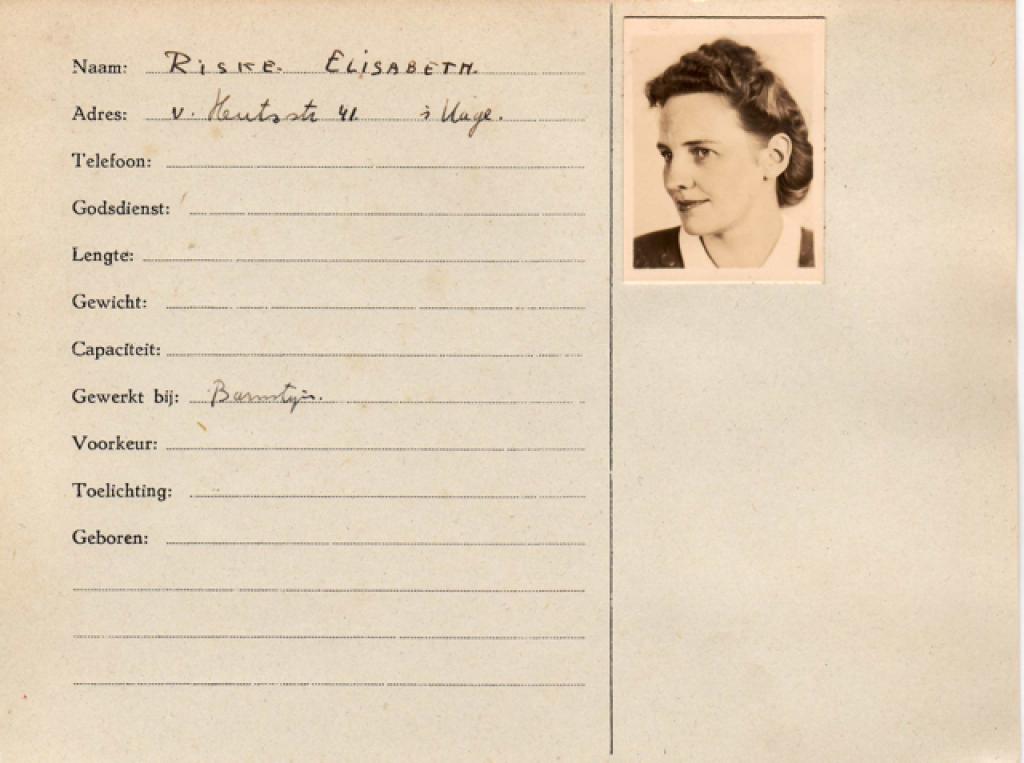 Naam: RISKE. ELISABETH.
Adres: v. Heutsstr 41 's Hage.
Telefoon:
Godsdienst:
Lengte:
Gewicht:
Capaciteit:
Gewerkt bij: Barnstijn.
Voorkeur:
Toelichting:
Geboren: